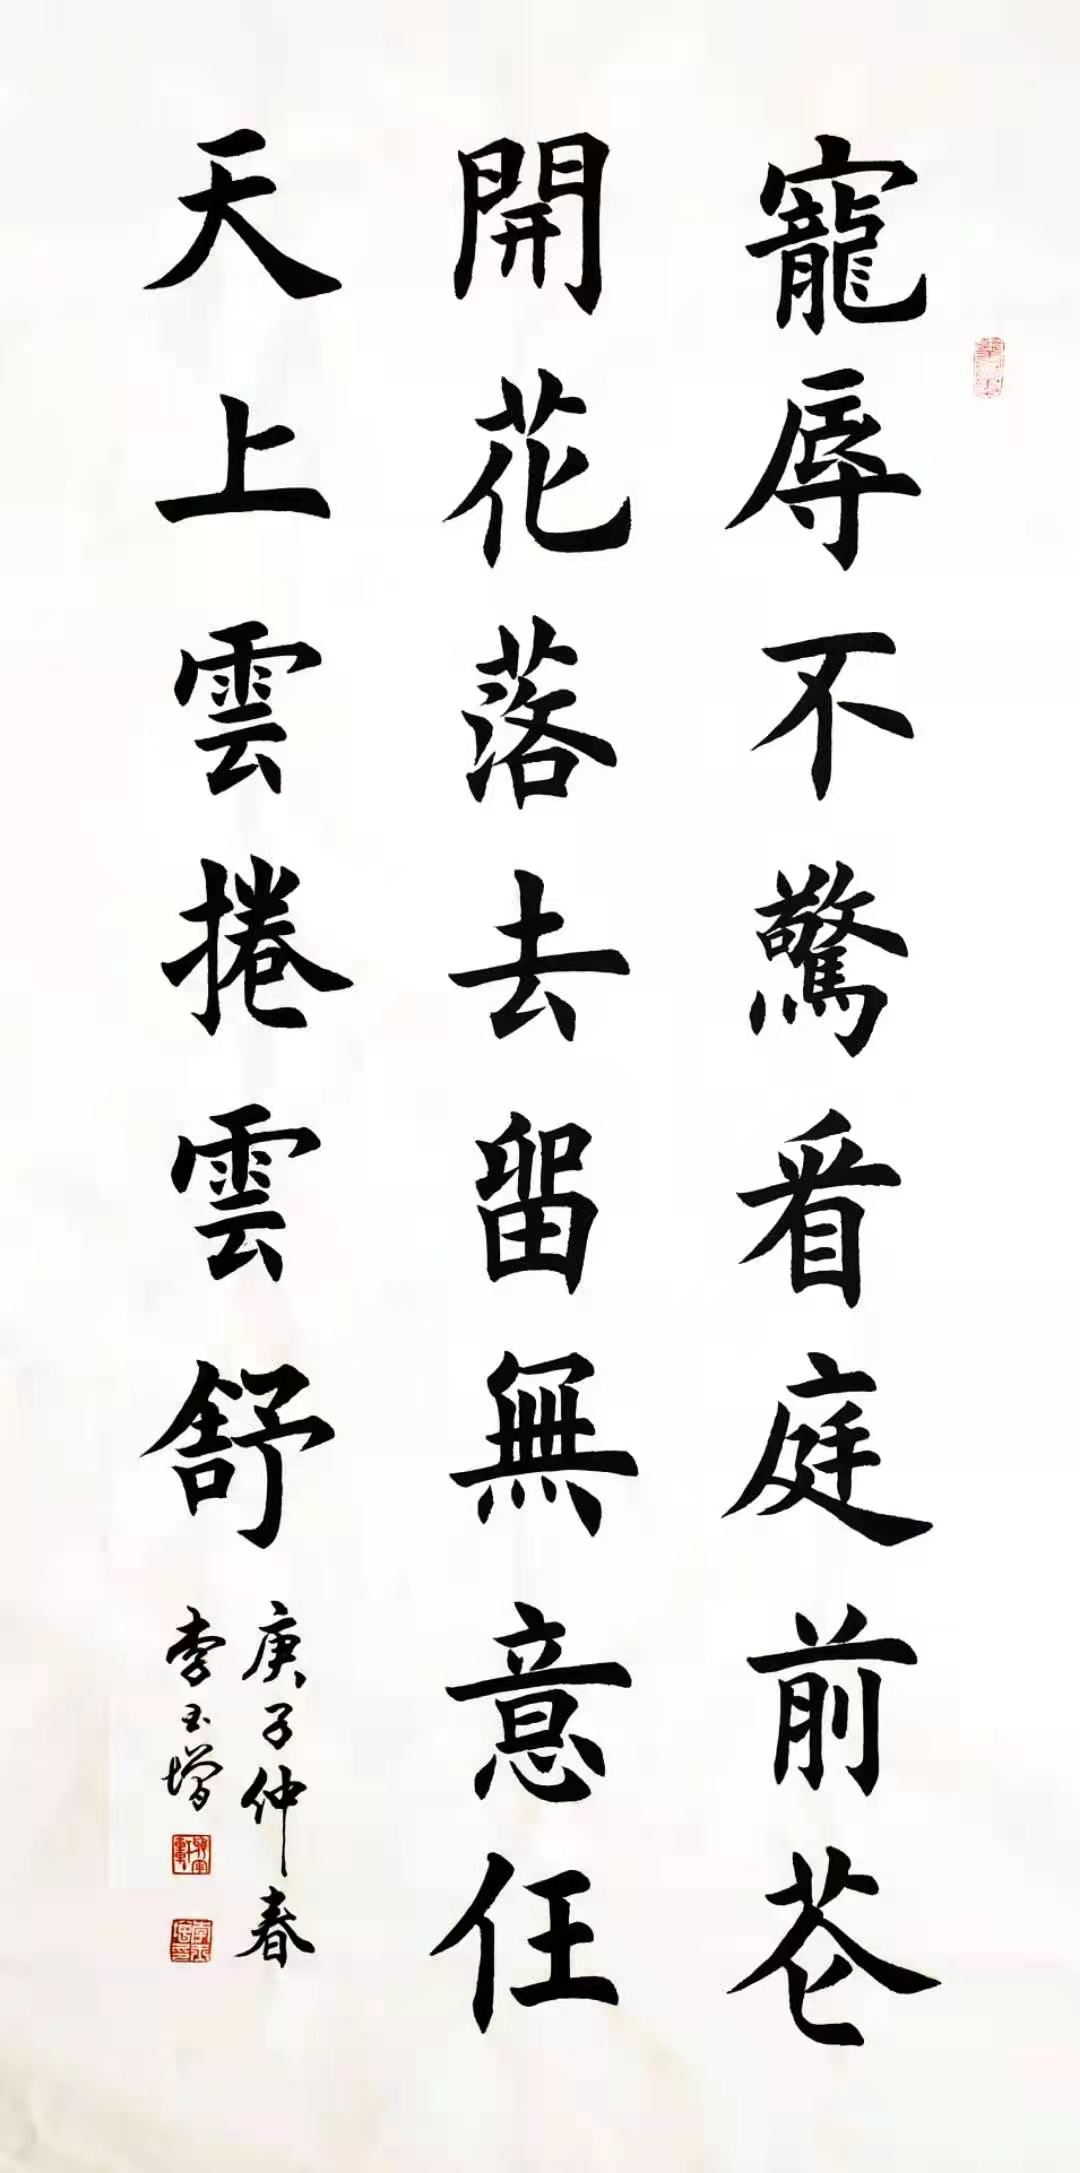 寵辱不驚看庭前芲
開花落去留無意任
天上雲捲雲舒
庚子仲春
李玉增